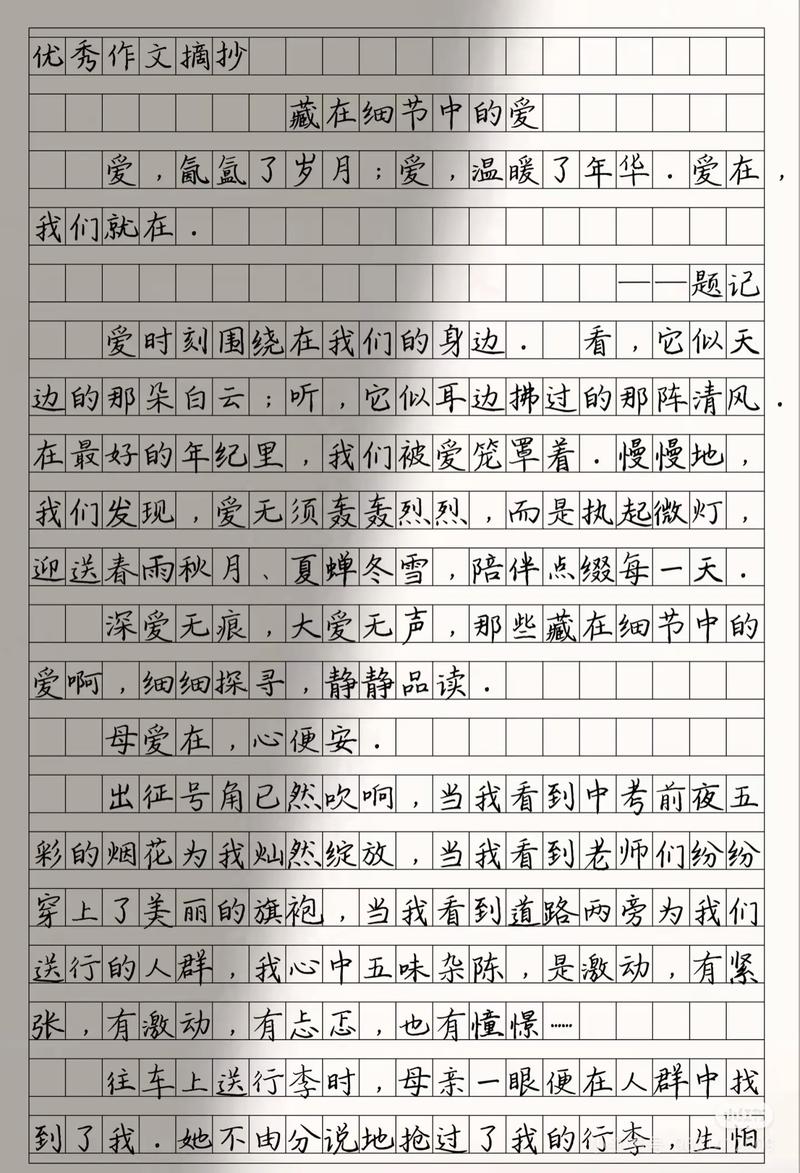 优秀作文摘抄
藏在细节中的爱
爱，氤氲了岁月；爱，温暖了年华．爱在，
我们就在．
——题记
爱时刻围绕在我们的身边．看，它似天
边的那朵白云；听，它似耳边拂过的那阵清风．
在最好的年纪里，我们被爱笼罩着．慢慢地，
我们发现，爱无须轰轰烈烈，而是执起微灯，
迎送春雨秋月、夏蝉冬雪，陪伴点缀每一天．
深爱无痕，大爱无声，那些藏在细节中的
爱啊，细细探寻，静静品读．
母爱在，心便安．
出征号角已然吹响，当我看到中考前夜五
彩的烟花为我灿然绽放，当我看到老师们纷纷
穿上了美丽的旗袍，当我看到道路两旁为我们
送行的人群，我心中五味杂陈，是激动，有紧
张，有激动，有忐忑，也有憧憬……
往车上送行李时，母亲一眼便在人群中找
到了我．她不由分说地抢过了我的行李，生怕